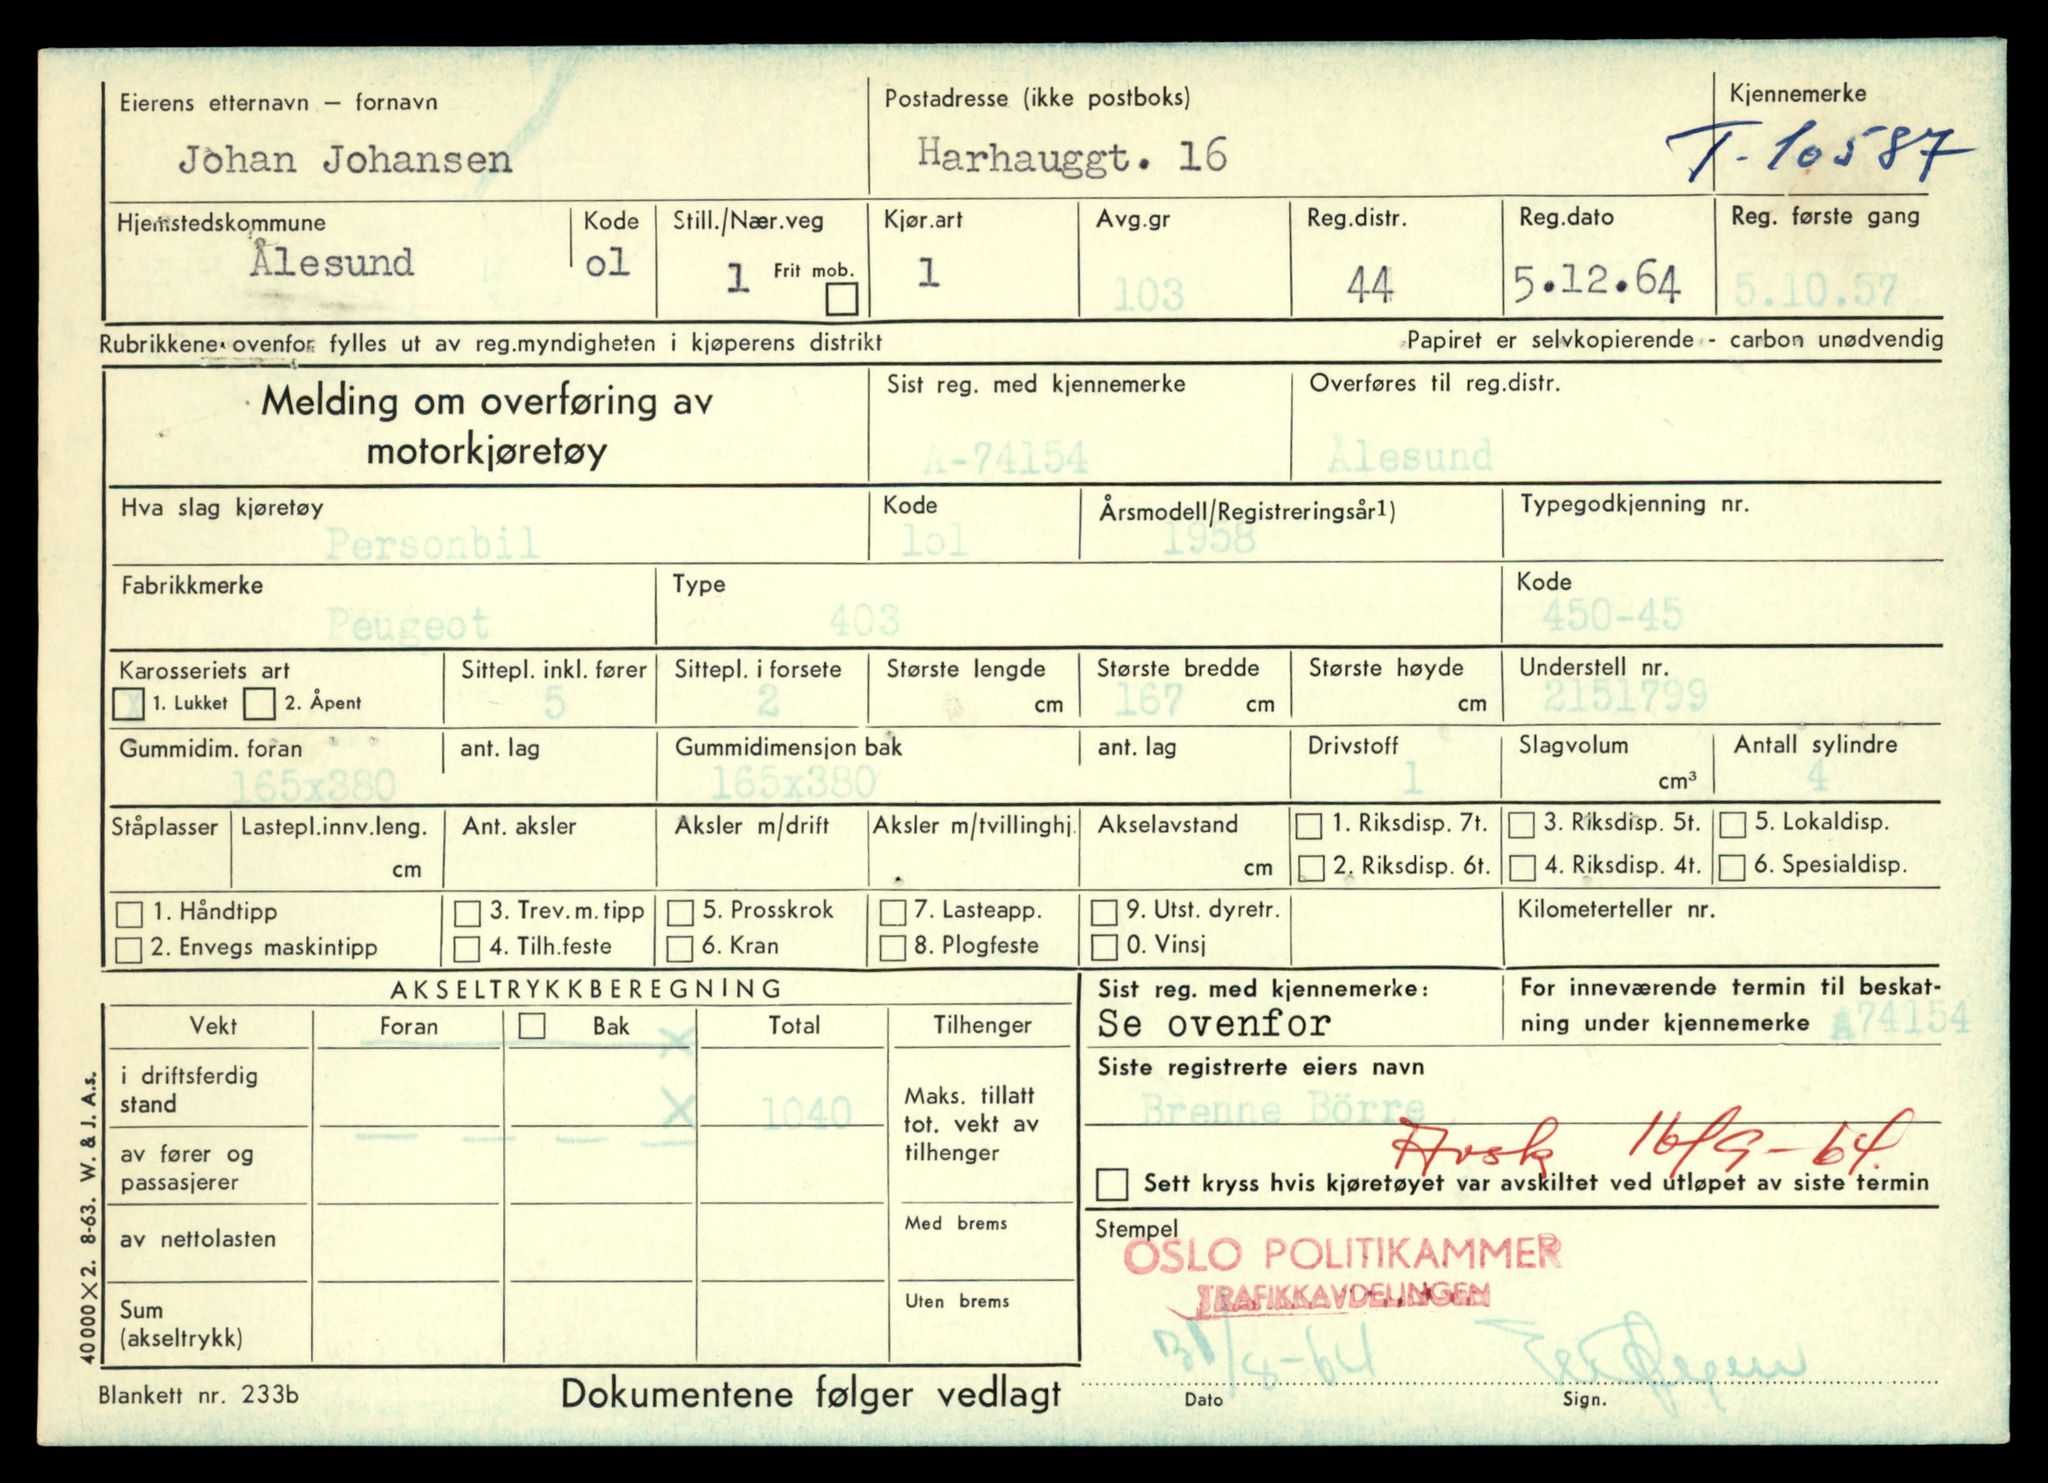 Eierens etternavn — fornavn
Johan Johansen
Postadresse (ikke postboks)
Harhauggt. 16
Kjennemerke
T-10587
Hjemstedskommune
Ålesund
Kode
ol
Still./Nær.veg
1
Frit mob.
Kjør.art
1
Avg.gr
103
Reg.distr.
44
Reg.dato
5.12.64
Reg. første gang
5.10.57
Rubrikkene ovenfor fylles ut av reg.myndigheten i kjøperens distrikt
Papiret er selvkopierende - carbon unødvendig
Melding om overføring av
motorkjøretøy
Sist reg. med kjennemerke
A-74154
Overføres til reg.distr.
Ålesund
Hva slag kjøretøy
Personbil
Kode
lol
Årsmodell/Registreringsår1)
1958
Typegodkjenning nr.
Fabrikkmerke
Peugeot
Type
403
Kode
450-45
Karosseriets art
X 1. Lukket 2. Åpent
Sittepl. inkl. fører
5
Sittepl. i forsete
2
Største lengde
cm
Største bredde
167 cm
Største høyde
cm
Understell nr.
2151799
Gummidim. foran
165x380
ant. lag
Gummidimensjon bak
165x380
ant. lag
Drivstoff
1
Slagvolum
cm³
Antall sylindre
4
Ståplasser
Lastepl.innv.leng.
cm
Ant. aksler
Aksler m/drift
Aksler m/tvillinghj.
Akselavstand
cm
1. Riksdisp. 7t.
2. Riksdisp. 6t.
3. Riksdisp. 5t.
4. Riksdisp. 4t.
5. Lokaldisp.
6. Spesialdisp.
1. Håndtipp
2. Envegs maskintipp
3. Trev. m. tipp
4. Tilh.feste
5. Prosskrok
6. Kran
7. Lasteapp.
8. Plogfeste
9. Utst. dyretr.
0. Vinsj
Kilometerteller nr.
AKSELTRYKKBEREGNING
Vekt
Foran
Bak
Total
Tilhenger
X
i driftsferdig
stand
X
1040
av fører og
passasjerer
av nettolasten
Sum
(akseltrykk)
Maks. tillatt
tot. vekt av
tilhenger
Med brems
Uten brems
Sist reg. med kjennemerke:
Se ovenfor
For inneværende termin til beskat-
ning under kjennemerke A74154
Siste registrerte eiers navn
Brenne Börre
Avsk 16/9-64.
Sett kryss hvis kjøretøyet var avskiltet ved utløpet av siste termin
Stempel
OSLO POLITIKAMMER
TRAFIKKAVDELINGEN
Dato
Sign.
40 000 X 2. 8-63. W. & J. A.s.
Blankett nr. 233b
Dokumentene følger vedlagt